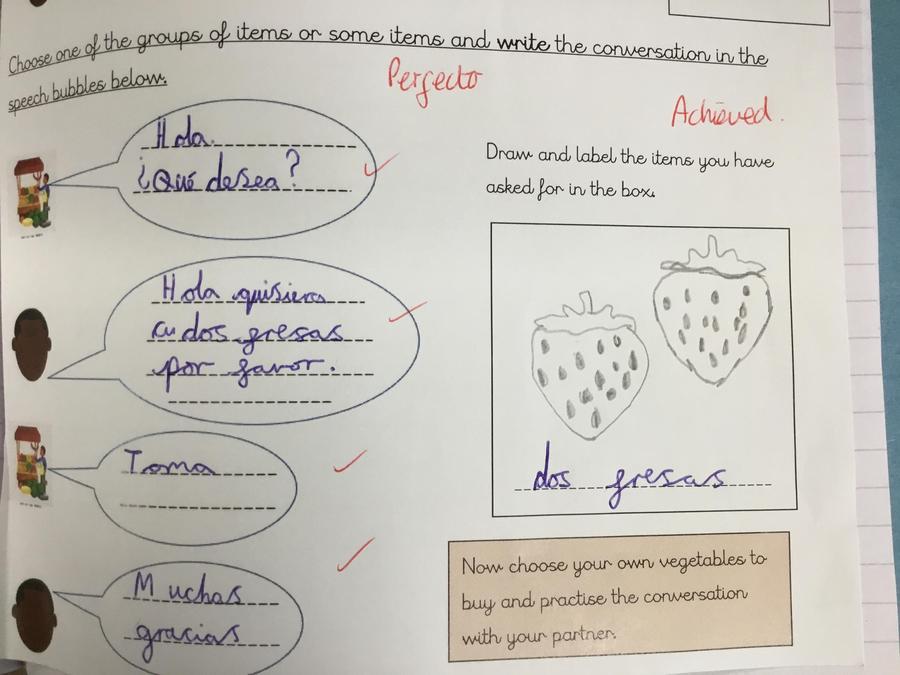 Choose one of the groups of items or some items and write the conversation in the
speech bubbles below.
Perfecto
Achieved.
Hola.
¿Qué desea?
Hola quisiera
cu dos fresas
por favor.
Toma
Muchas
gracias
Draw and label the items you have
asked for in the box.
dos fresas
Now choose your own vegetables to
buy and practise the conversation
with your partner.